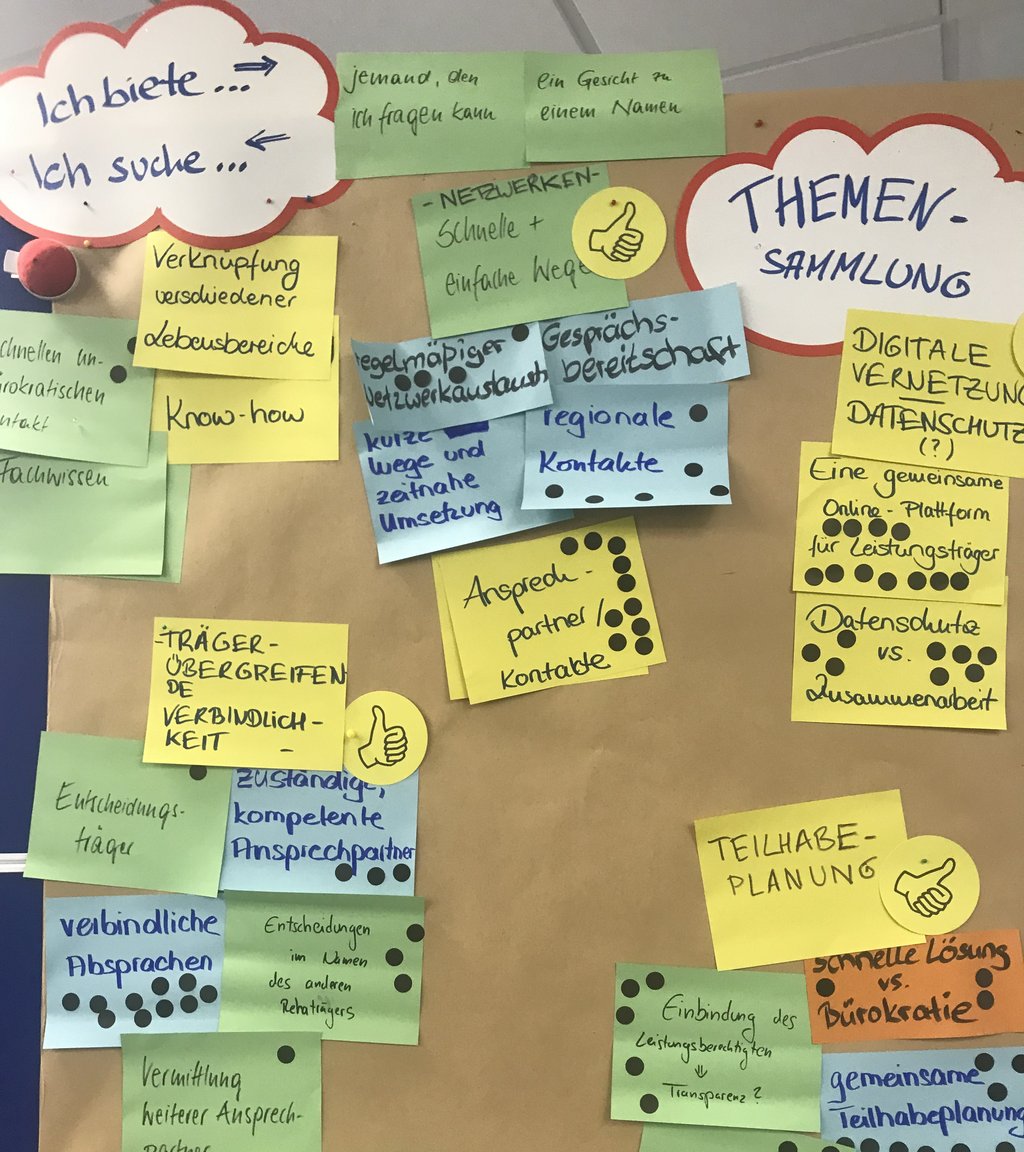 Ich biete ...
Ich suche ...
jemand, den
ich fragen kann
ein Gesicht zu
einem Namen
- NETZWERKEN -
Schnelle +
einfache Wege
THEMEN-
SAMMLUNG
Verknüpfung
verschiedener
Lebensbereiche
Know-how
chnellen un-
rokratischen
ntakt
Fachwissen
egelmäßiger
Netzwerkaustausch
Gesprächs-
bereitschaft
kurze
Wege und
zeitnahe
Umsetzung
regionale
Kontakte
Ansprech-
partner/
Kontakte
DIGITALE
VERNETZUNG
DATENSCHUTZ
(?)
Eine gemeinsame
Online-Plattform
für Leistungsträger
Datenschutz
vs.
Zusammenarbeit
-TRÄGER-
ÜBERGREIFEN
DE
VERBINDLICH-
KEIT -
Entscheidungs-
träger
zuständige,
kompetente
Ansprechpartner
verbindliche
Absprachen
Entscheidungen
im Namen
des anderen
Rehaträgers
Vermittlung
weiterer Ansprech-
partner
TEILHABE-
PLANUNG
schnelle Lösung
vs.
Bürokratie
Einbindung des
Leistungsberechtigten
⇓
Transparenz?
gemeinsame
Teilhabeplanung